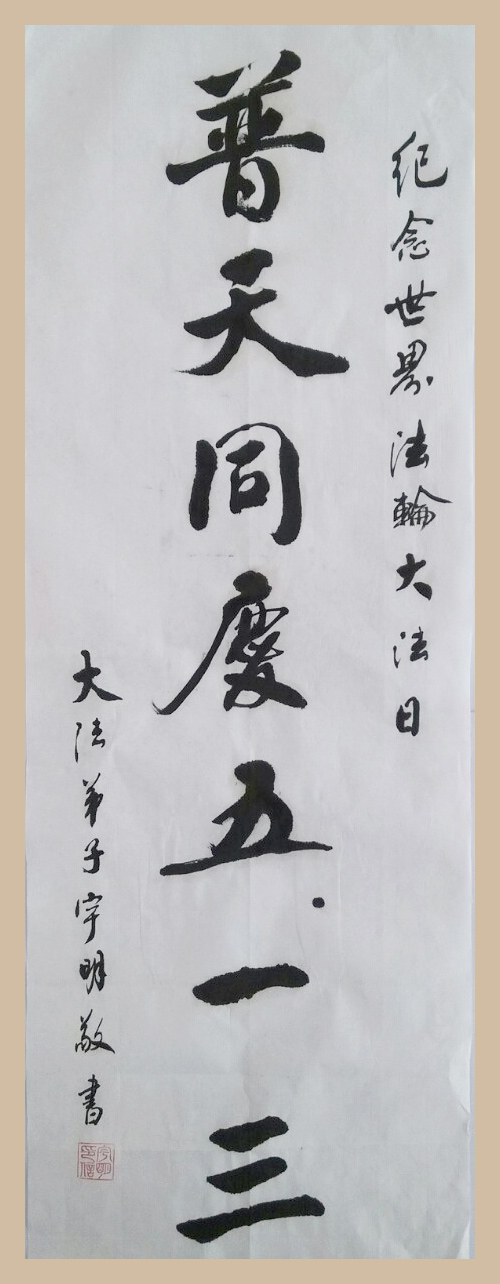 紀念世界法輪大法日
普天同慶五·一三
大法弟子宇明敬書